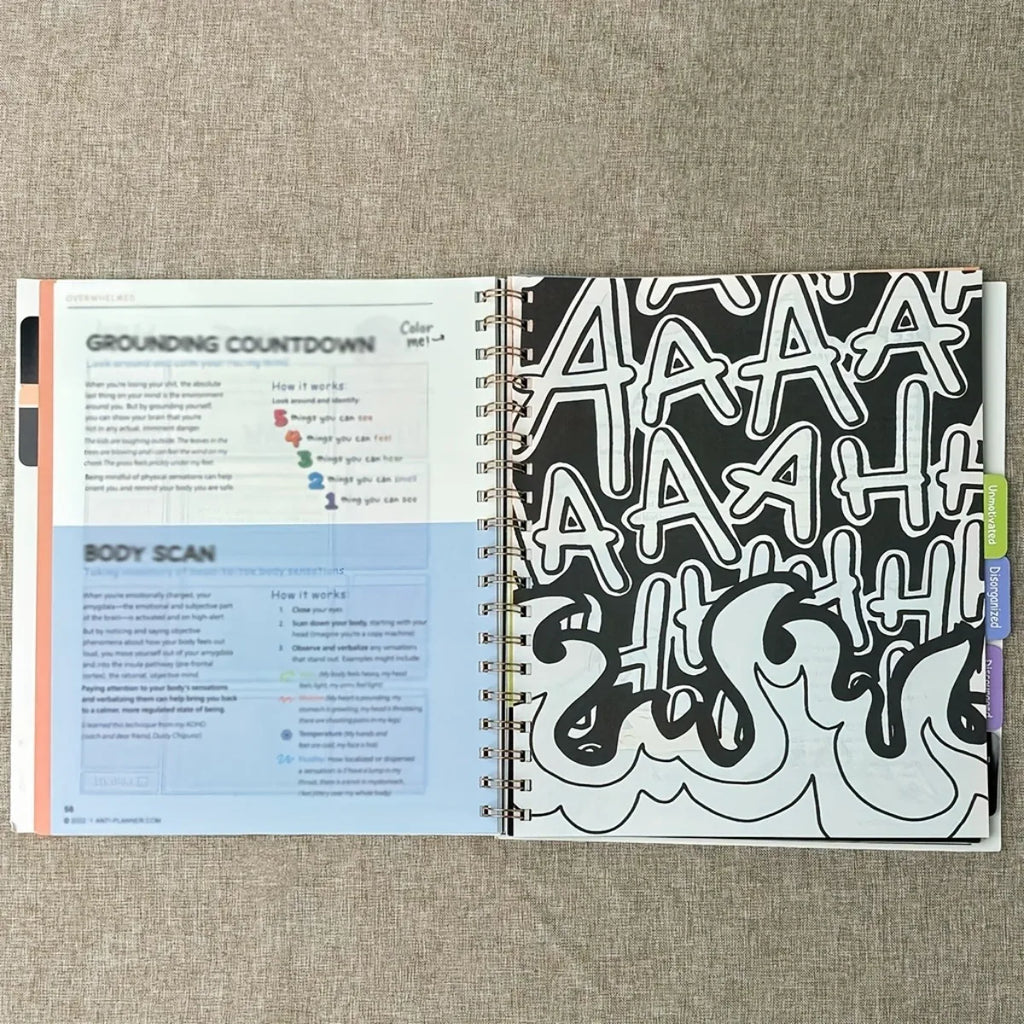 OVERWHELMED
GROUNDING COUNTDOWN
Color
me!
Look around and calm your racing mind
When you're losing your shit, the absolute
last thing on your mind is the environment
around you. But by grounding yourself,
you can show your brain that you're
not in any actual, imminent danger
The kids are laughing outside. The leaves in the
trees are blowing and I can feel the wind on my
cheek. The grass feels prickly under my feet.
Being mindful of physical sensations can help
orient you and remind your body you are safe
How it works:
Look around and identify:
5 things you can see
4 things you can feel
3 things you can hear
2 things you can smell
1 thing you can see
BODY SCAN
Taking inventory of body sensations
When you're emotionally charged, your
amygdala—the emotional and subjective part
of the brain—is activated and on high-alert
But by noticing and saying objective
phenomena about how your body feels out
loud, you move yourself out of your amygdala
and into the insula pathway (pre-frontal
cortex), the rational, objective mind.
Paying attention to your body's sensations
and verbalizing them can help bring you back
to a calmer, more regulated state of being.
(I learned this technique from my ADHD
coach and dear friend, Dusty Chipura!)
How it works:
1. Close your eyes
2. Scan down your body, starting with your
head (imagine you're a copy machine)
3. Observe and verbalize any sensations
that stand out. Examples might include:
(My body feels heavy, my head
feels light, my arms feel tight)
(My heart is pounding, my
stomach is growling, my head is throbbing,
there are shooting pains in my legs)
Temperature (My hands and
feet are cold, my face is hot)
How localized or dispersed
a sensation is (I have a lump in my
throat, there is a knot in my stomach,
I feel jittery over my whole body)
56
© 2022 | ANTI-PLANNER.COM
AAA
AAAA
AAAHH
AAHH
Unmotivated
Disorganized
Discouraged